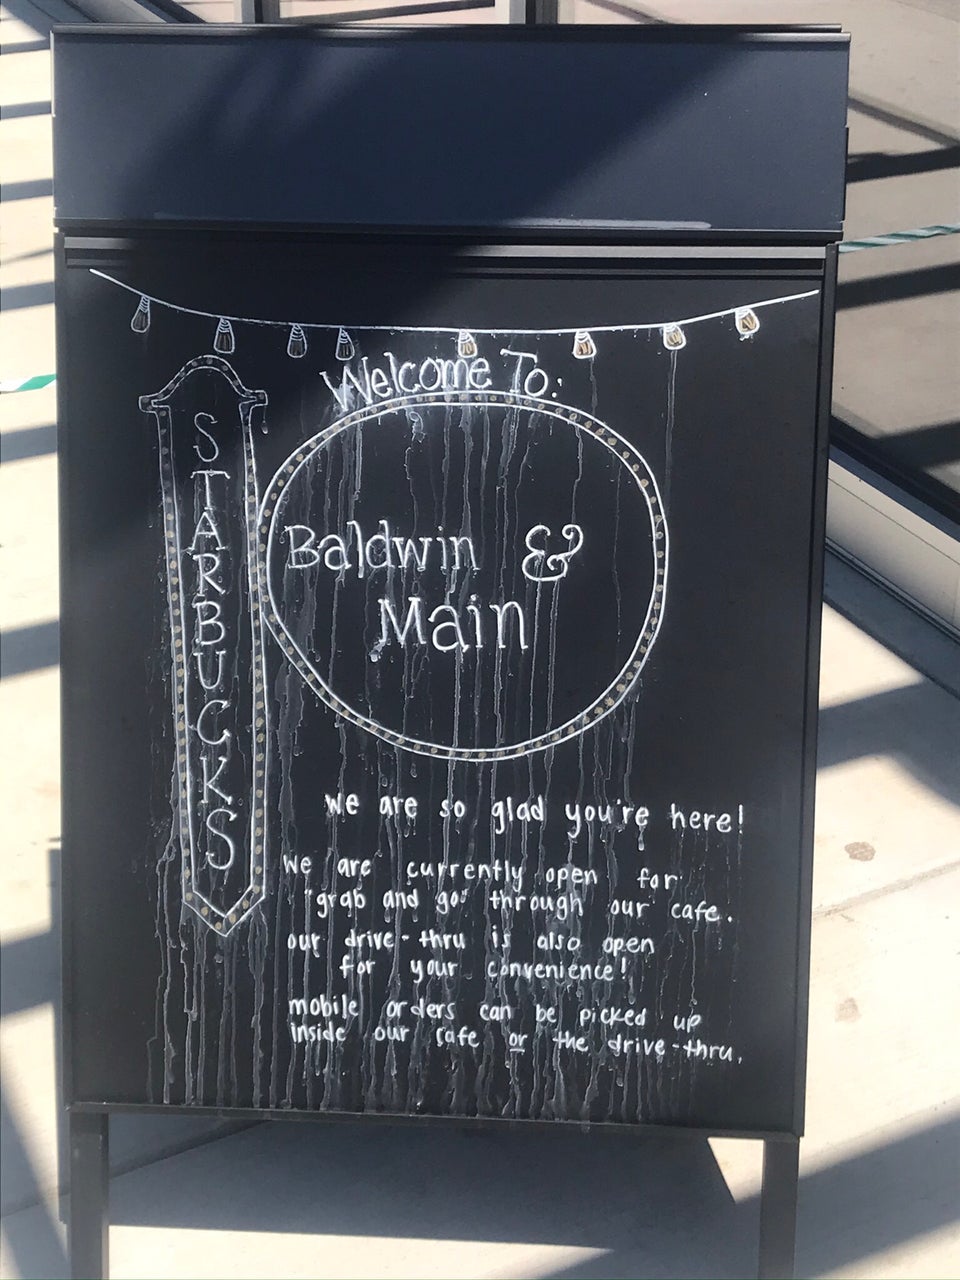 Welcome To:
STARBUCKS
Baldwin &
Main
we are so glad you're here!
we are currently open for
"grab and go" through our cafe.
our drive-thru is also open
for your convenience!
mobile orders can be picked up
inside our cafe or the drive-thru.